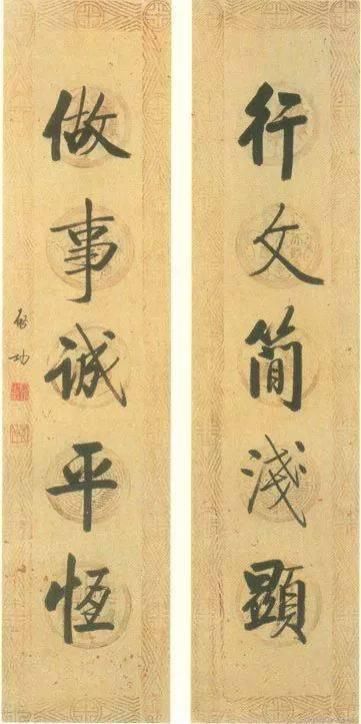 行文简淺顯
做事诚平恒
启功